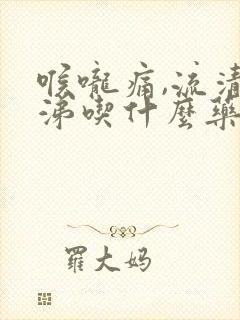 喉嚨痛,流清
涕喫什麼藥
羅大妈